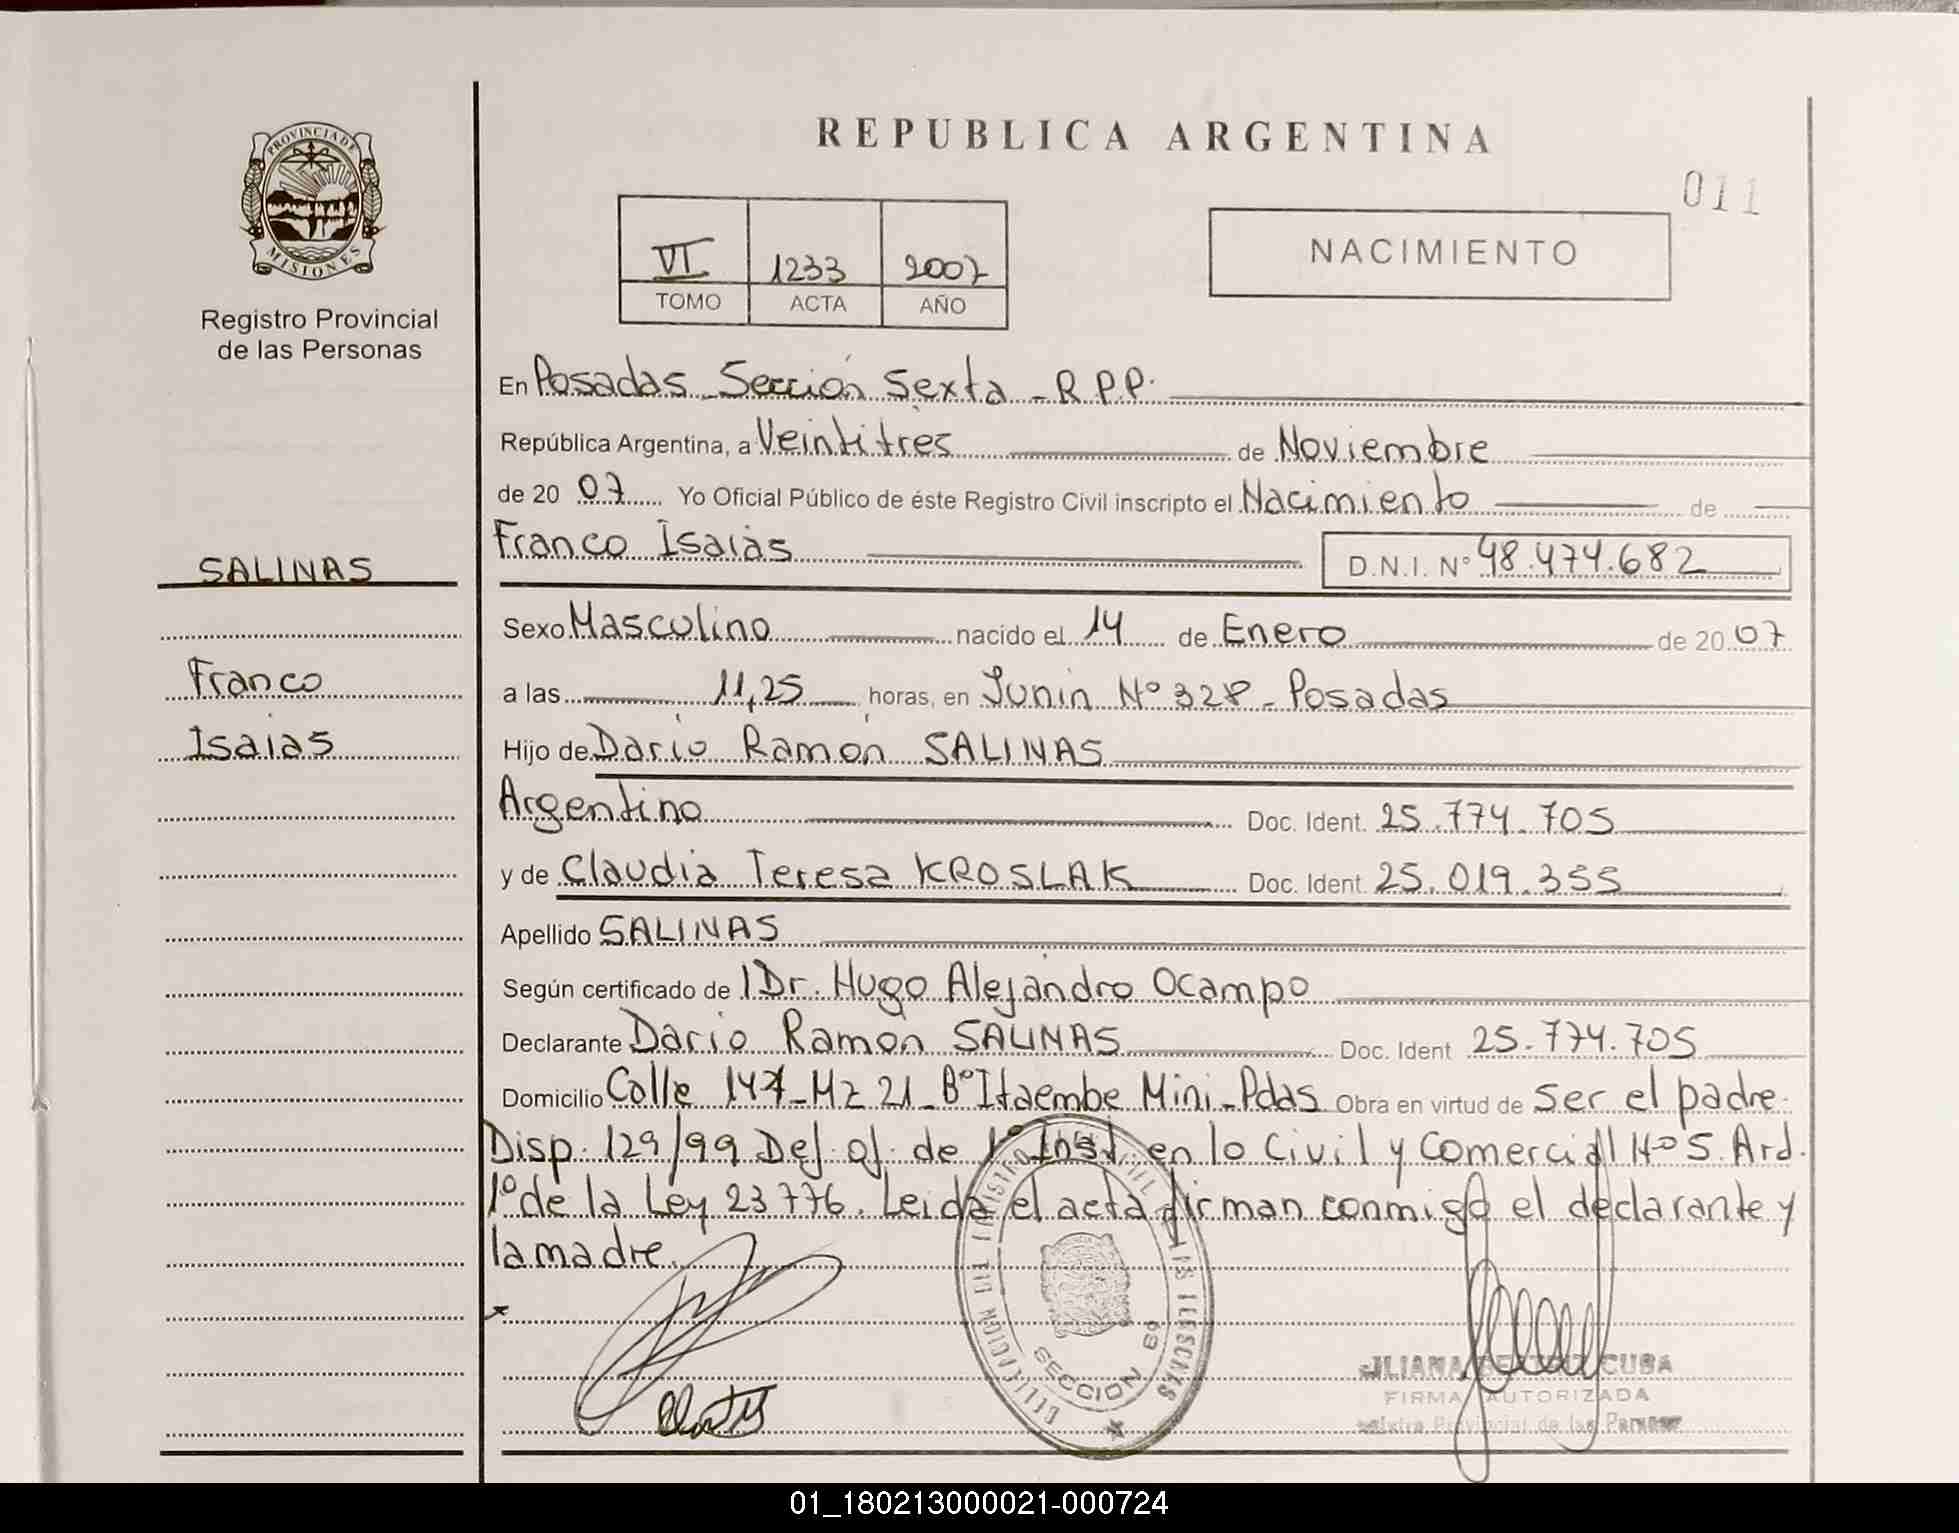 REPUBLICA ARGENTINA
011
PROVINCIA DE
MISIONES
Registro Provincial
de las Personas
VI 1233 2007
TOMO ACTA AÑO
NACIMIENTO
En Posadas Sección Sexta - R.P.P.
República Argentina, a Veintitres de Noviembre
de 20 07 Yo Oficial Público de éste Registro Civil inscripto el Nacimiento de
Franco Isaias D.N.I. Nº 48.474.682
SALINAS
Franco
Isaias
Sexo Masculino nacido el 14 de Enero de 20 07
a las 11,25 horas, en Junin Nº 328 - Posadas
Hijo de Dario Ramón SALINAS
Argentino Doc. Ident. 25.774.705
y de Claudia Teresa KROSLAK Doc. Ident. 25.019.355
Apellido SALINAS
Según certificado de l Dr. Hugo Alejandro Ocampo
Declarante Dario Ramón SALINAS Doc. Ident 25.774.705
Domicilio Calle 147 - Mz 21 - Bº Itaembe Mini - Pdas Obra en virtud de ser el padre.
Disp. 129/99 Def. of. de 1º Inst. en lo Civil y Comercial Nº 5. Art.
1º de la Ley 23776. Leida el acta firman conmigo el declarante y
la madre.
SECCION 6ª
CUBA
FIRMA AUTORIZADA
Provincial de las Personas
01_180213000021-000724